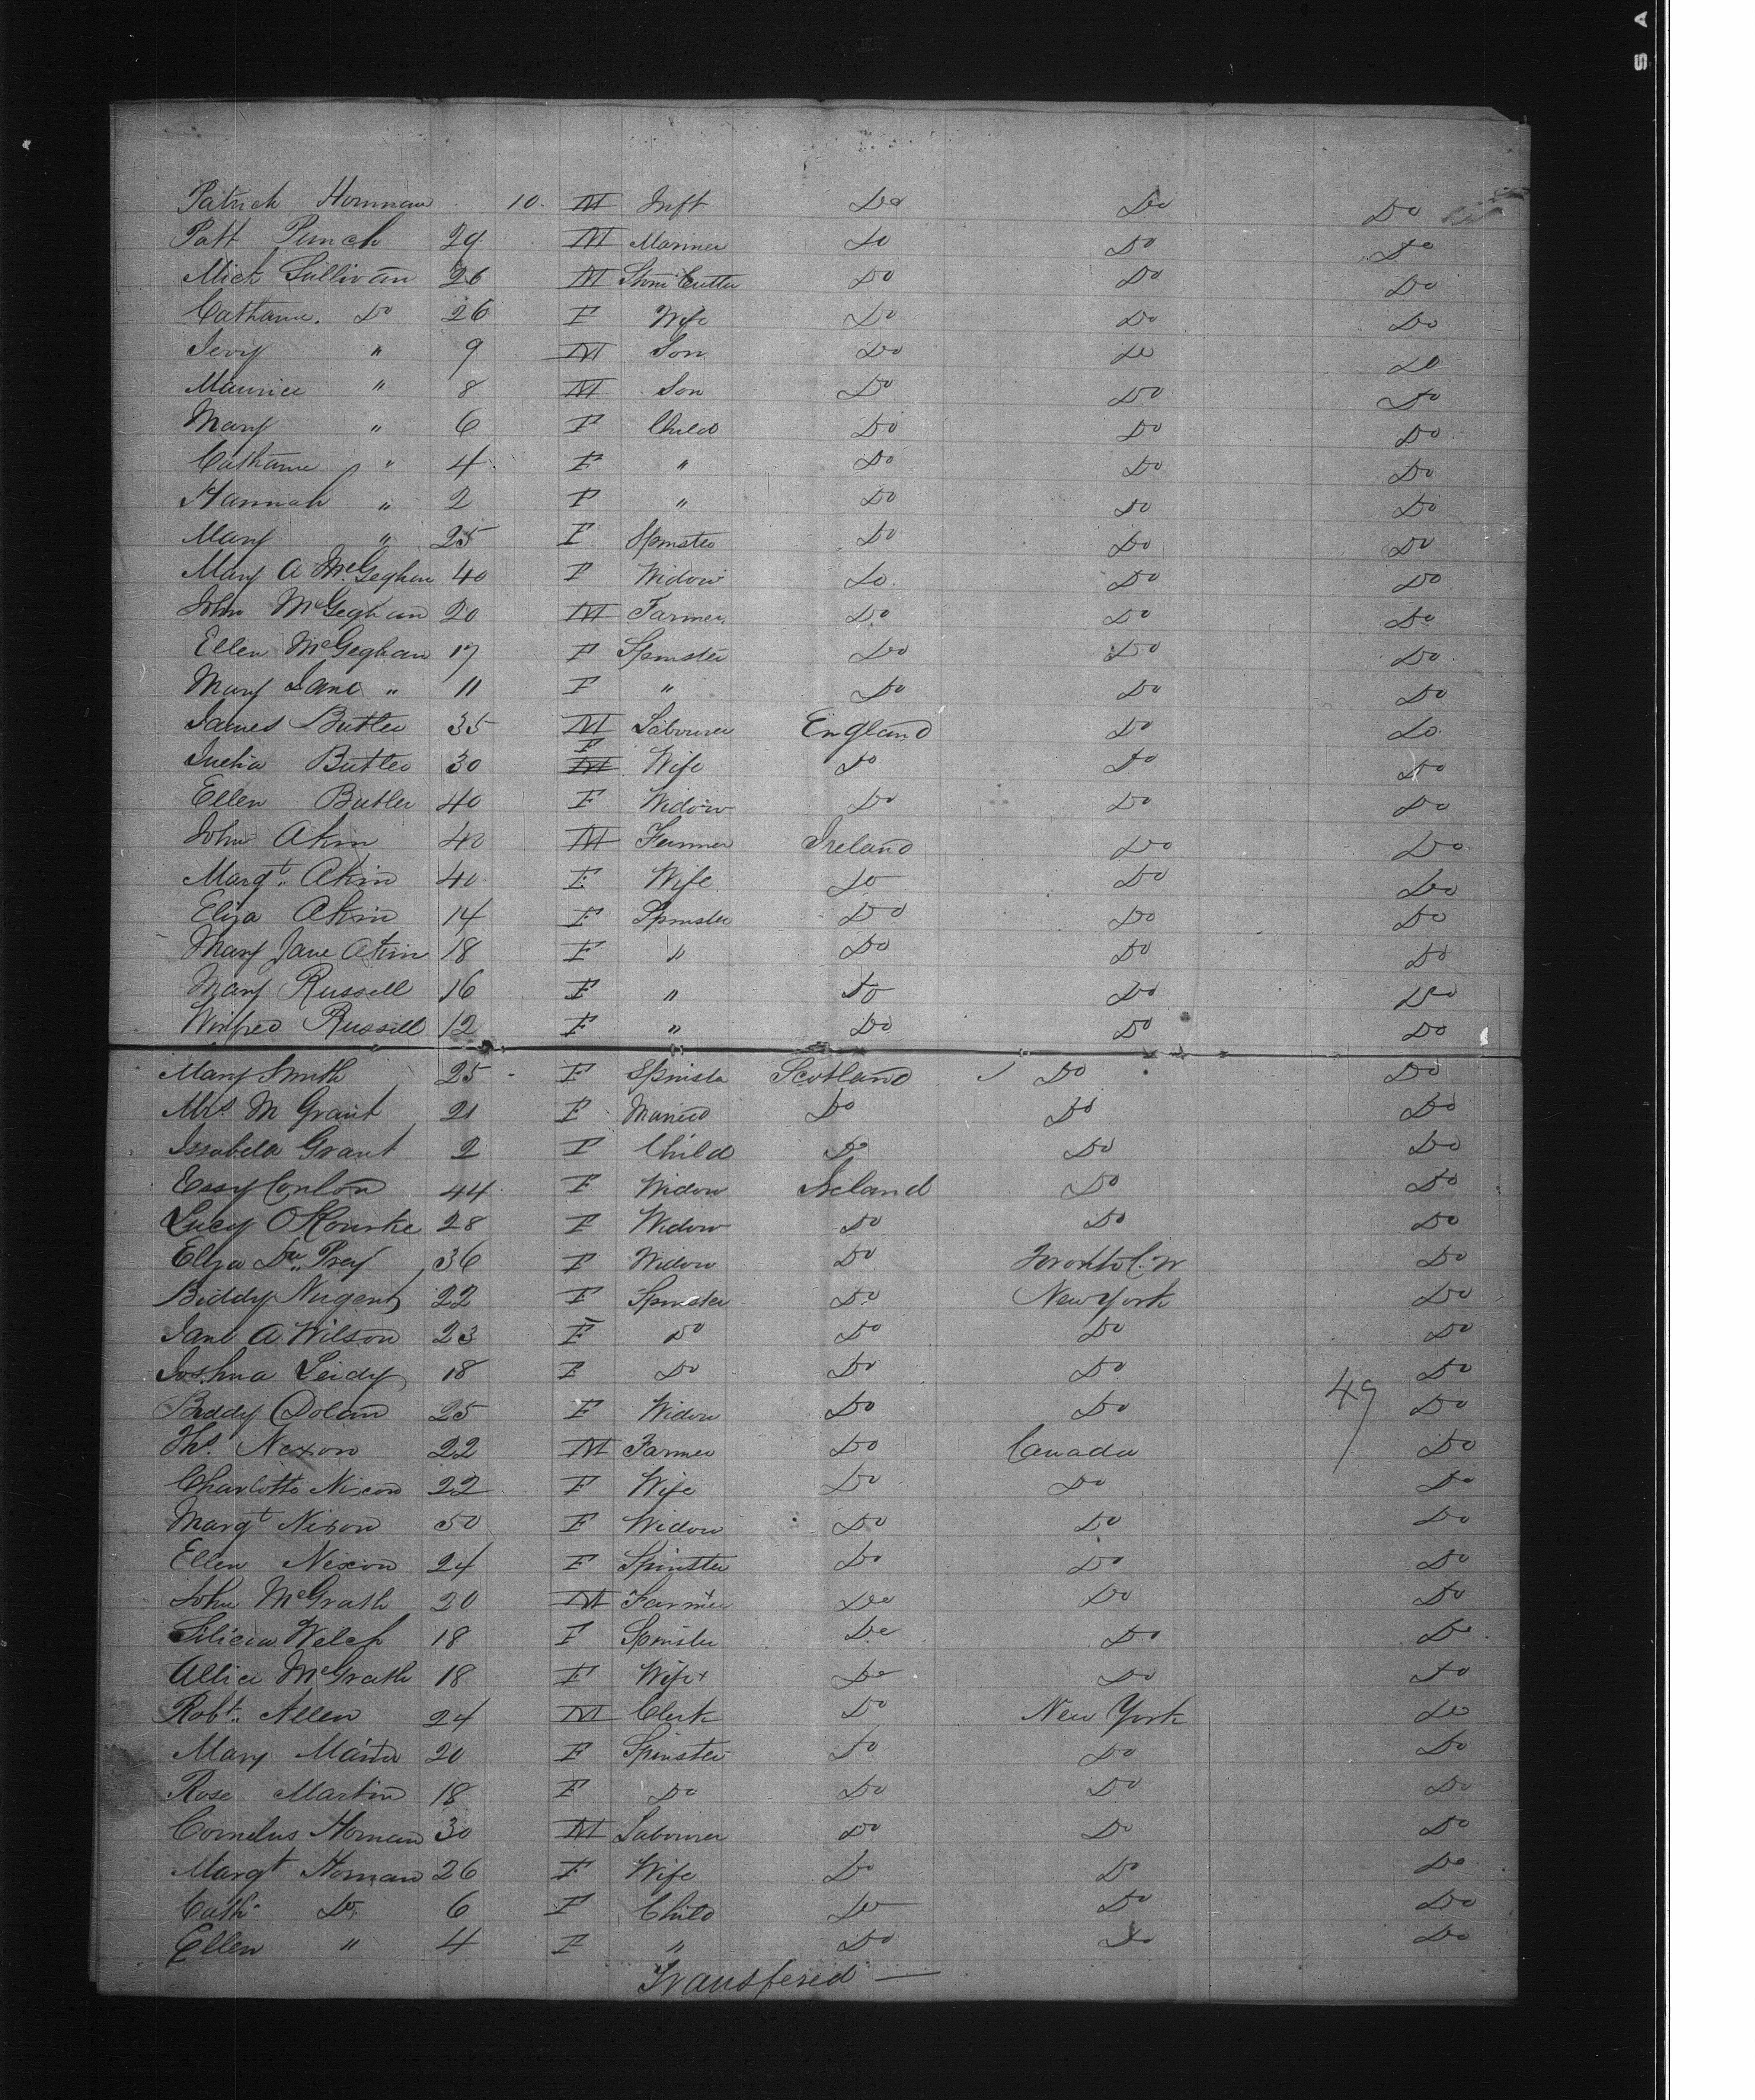 S A
Patrick Hornnan 10. M Inft Do Do Do
Patt Punch 29 M Mariner Do Do Do
Mick Sullivan 26 M Stone Cutter Do Do Do
Catharine. Do 26 F Wife Do Do Do
Jerry " 9 M Son Do Do Do
Maurice " 8 M Son Do Do Do
Mary " 6 F Child Do Do Do
Catharine " 4 F " Do Do Do
Hannah " 2 F " Do Do Do
Mary " 25 F Spinster Do Do Do
Mary A McGeghan 40 F Widow Do Do Do
John McGeghan 20 M Farmer Do Do Do
Ellen McGeghan 17 F Spinster Do Do Do
Mary Jane " 11 F " Do Do Do
James Butler 35 M Labourer England Do Do
Butler 30 F Wife Do Do Do
Ellen Butler 40 F Widow Do Do Do
John Akin 40 M Farmer Ireland Do Do
Margt. Akin 40 F Wife Do Do Do
Eliza Akin 14 F Spinster Do Do Do
Mary Jane Akin 18 F " Do Do Do
Mary Russell 16 F " Do Do Do
Winfred Russell 12 F " Do Do Do
Mary Smith 25 F Spinster Scotland Do Do
Mrs. M Grant 21 F Married Do Do Do
Issabela Grant 2 F Child Do Do Do
Essy Conlon 44 F Widow Ireland Do Do
Lucy O'Rourke 28 F Widow Do Do Do
Eliza Du Prey 36 F Widow Do Toronto C.W Do
Biddy Nugent 22 F Spinster Do New York Do
Jane A Wilson 23 F Do Do Do Do
Joshua Leidy 18 F Do Do Do Do
Biddy Dolan 25 F Widow Do Do 49 Do
Ths. Nexon 22 M Farmer Do Canada Do
Charlotte Nixon 22 F Wife Do Do Do
Margt Nixon 50 F Widow Do Do Do
Ellen Nixon 24 F Spinster Do Do Do
John McGrath 20 M Farmer Do Do Do
Silicia Welch 18 F Spinster Do Do Do
Allice McGrath 18 F Wife+ Do Do Do
Robt. Allen 24 M Clerk Do New York Do
Mary Martin 20 F Spinster Do Do Do
Rose Martin 18 F Do Do Do Do
Cornelus Hornan 30 M Labourer Do Do Do
Margt Hornan 26 F Wife Do Do Do
Cath. Do 6 F Child Do Do Do
Ellen " 4 F " Do Do Do
Transfered —